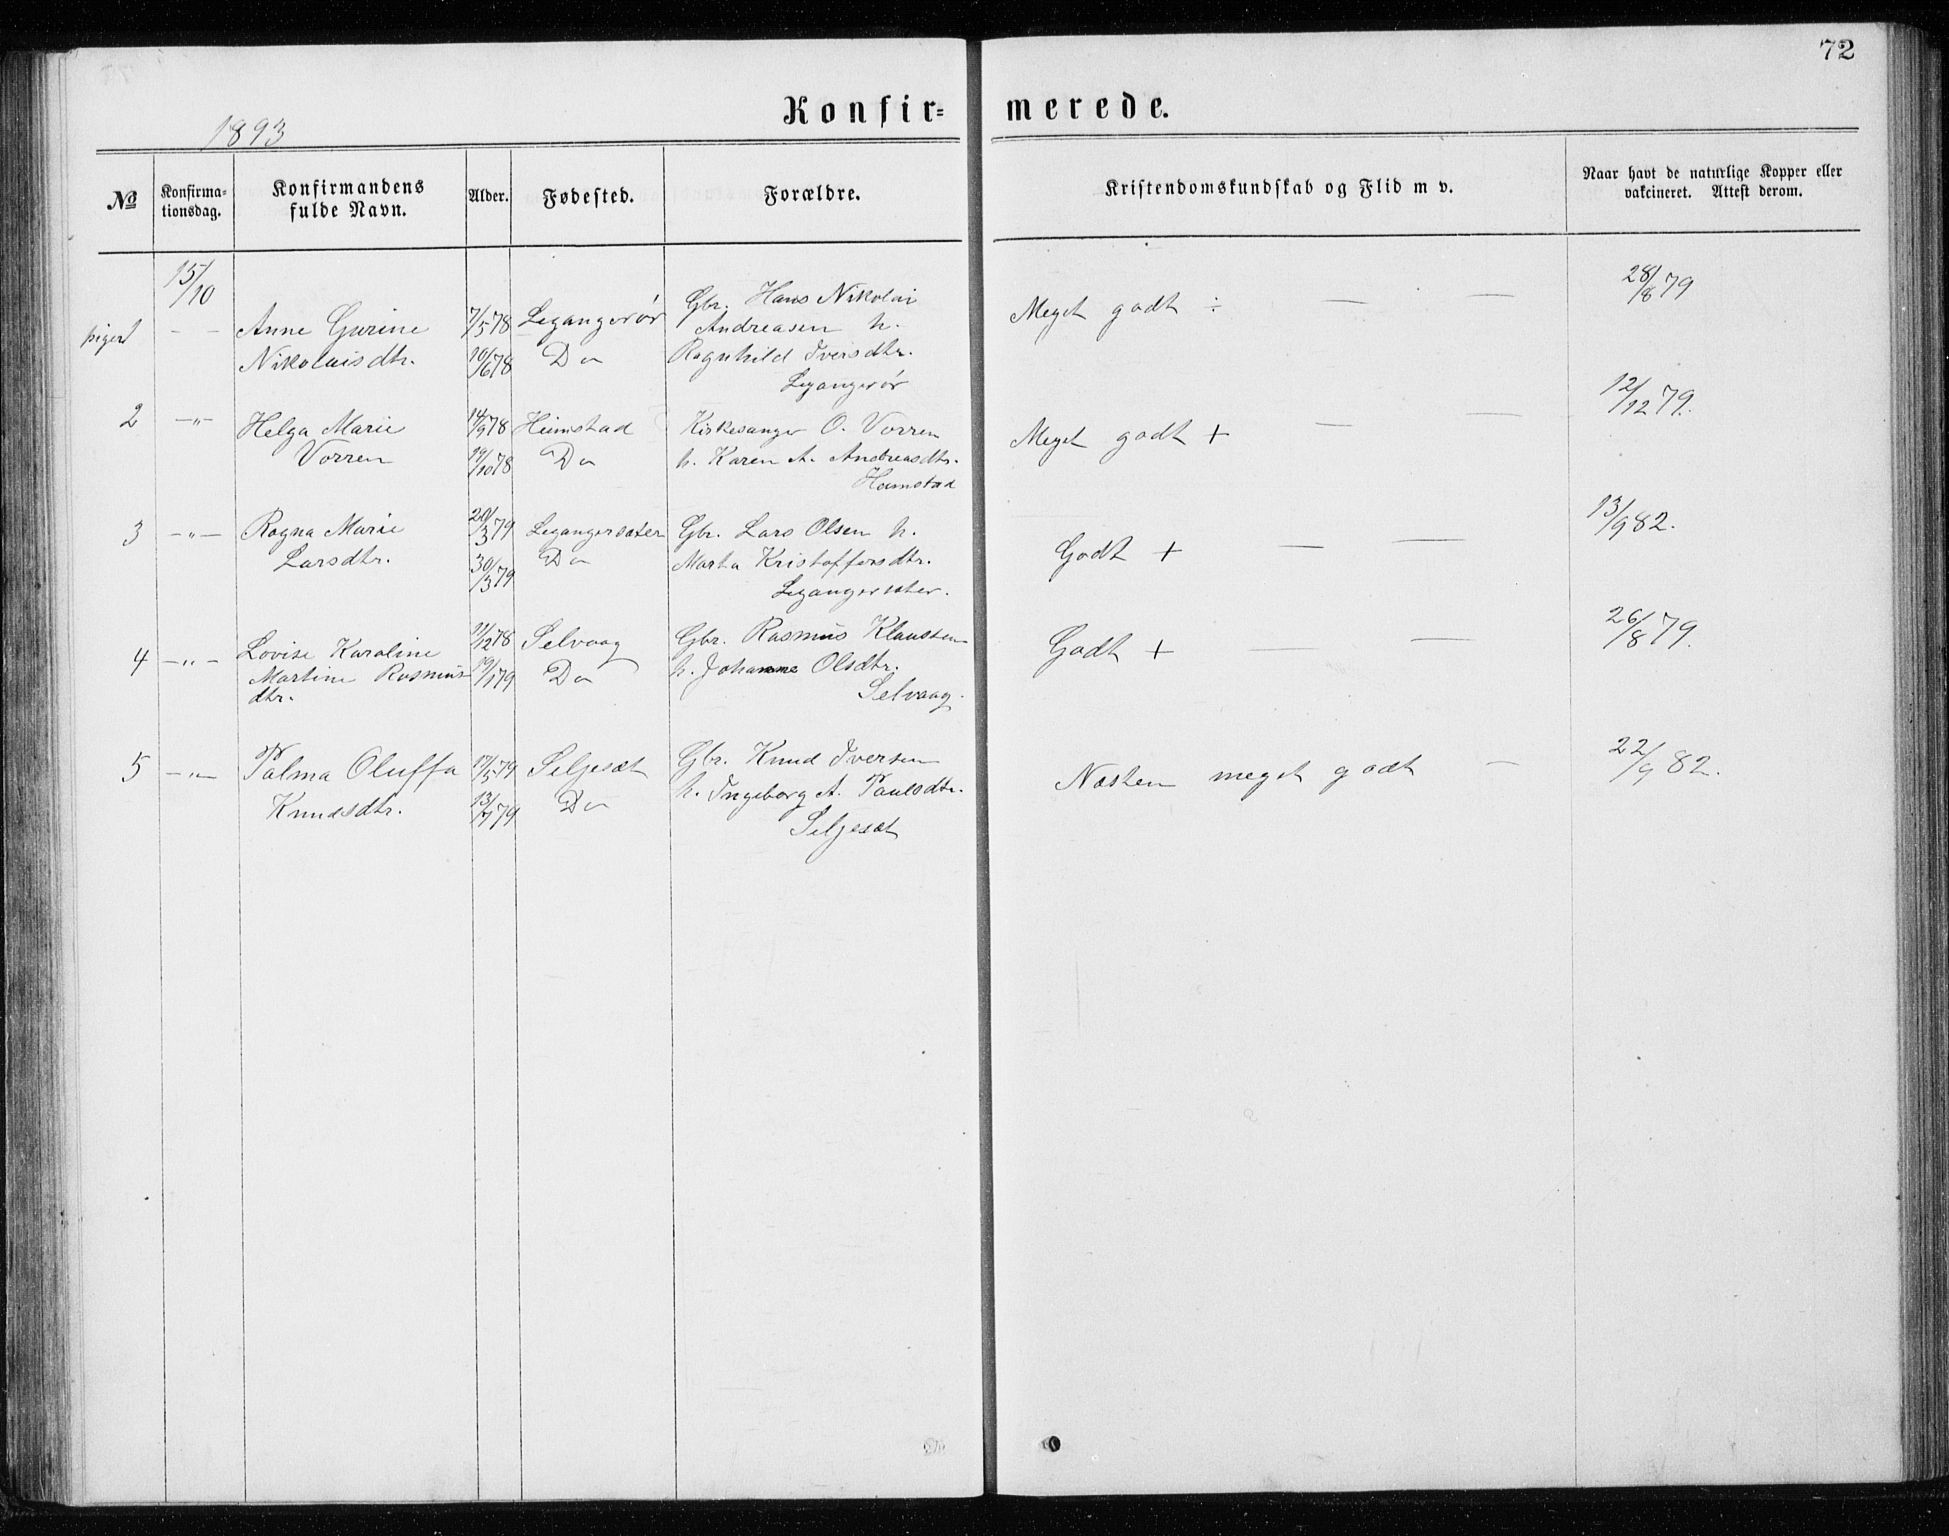 72
Konfir= merede.
1893
№ Konfirma= tionsdag. Konfirmandens fulde Navn. Alder. Fødested. Forældre. Kristendomskundskab og Flid m v. Naar havt de naturlige Kopper eller vakcineret. Attest derom.
15/10 28/8 79
piger — — Anne Gurine 7/5 78 Legangerør Gbr. Hans Nikolai Meget godt ÷ — —
Andreasen h.
Nikolaisdtr. 10/6 78 Do Ragnhild Iversdtr.
Legangerør
12/12 79.
2 —"— Helga Marie 14/9 78 Heimstad Kirkesanger O. Vorren Meget godt + — —
Vorren 19/10 78 Do h. Karen A. Andreasdtr.
Hamstad
13/9 82.
3 —"— Ragna Marie 20/3 79 Legangersæter Gbr. Lars Olsen h. Godt + — —
Larsdtr. 30/3 79 Do Marta Kristoffersdtr.
Legangersæter.
4 —"— Lovise Karoline 11/12 78 Selvaag Gbr. Rasmus Klausten Godt + — — 26/8 79.
Martine Rasmus 19/1 79 Do h. Johanne Olsdtr.
dtr. Selvaag.
5 —"— Palma Oluffa 17/5 79 Seljesæt Gbr. Knud Iversen Næsten meget godt — 22/9 82.
Knudsdtr. 13/7 79 Do h. Ingeborg A. Paulsdtr.
Seljesæt